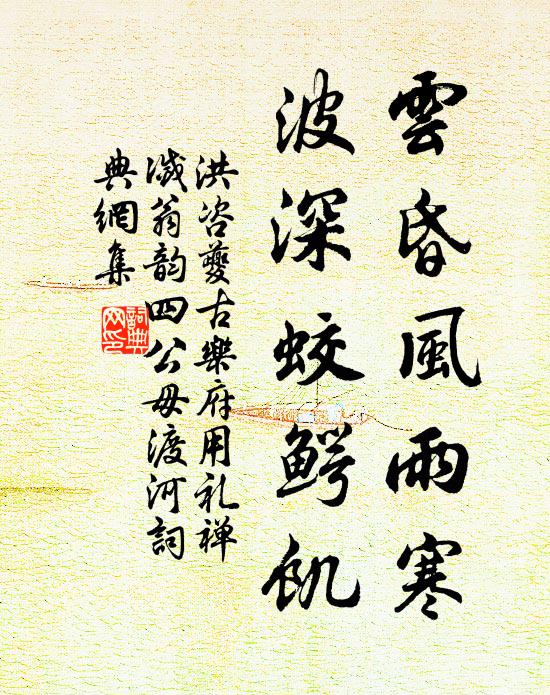 雲昏風雨寒
波深蛟鳄飢
洪咨夔古樂府用礼禅
滅翁韵四公毋渡河詞
典網集
詞典網印